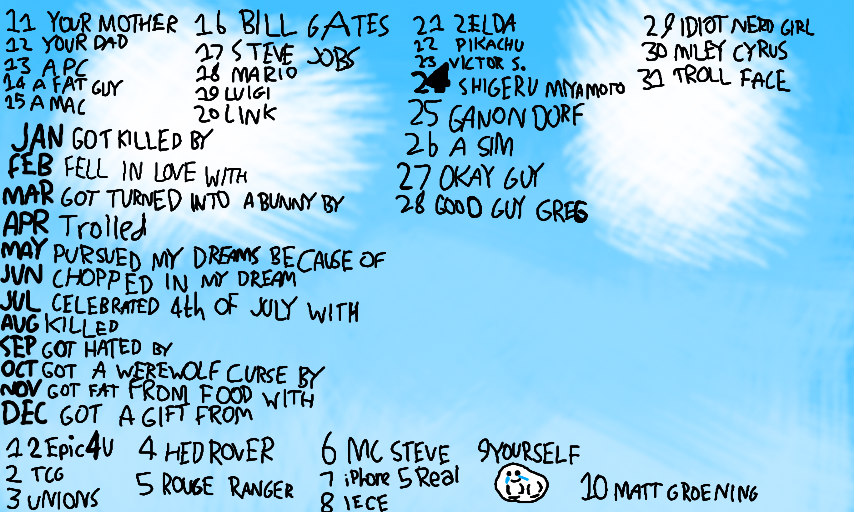 11 YOUR MOTHER
12 YOUR DAD
13 A PC
14 A FAT GUY
15 A MAC
16 BILL GATES
17 STEVE JOBS
18 MARIO
19 LUIGI
20 LINK
21 ZELDA
22 PIKACHU
23 VICTOR S.
24 SHIGERU MIYAMOTO
25 GANONDORF
26 A SIM
27 OKAY GUY
28 GOOD GUY GREG
29 IDIOT NERD GIRL
30 MILEY CYRUS
31 TROLL FACE
JAN GOT KILLED BY
FEB FELL IN LOVE WITH
MAR GOT TURNED INTO A BUNNY BY
APR Trolled
MAY PURSUED MY DREAMS BECAUSE OF
JUN CHOPPED IN MY DREAM
JUL CELEBRATED 4th OF JULY WITH
AUG KILLED
SEP GOT HATED BY
OCT GOT A WEREWOLF CURSE BY
NOV GOT FAT FROM FOOD WITH
DEC GOT A GIFT FROM
1 2Epic4U
2 TCG
3 UNIONS
4 HEDROVER
5 ROUGE RANGER
6 MC STEVE
7 iPhone 5 Real
8 IECE
9 YOURSELF
10 MATT GROENING